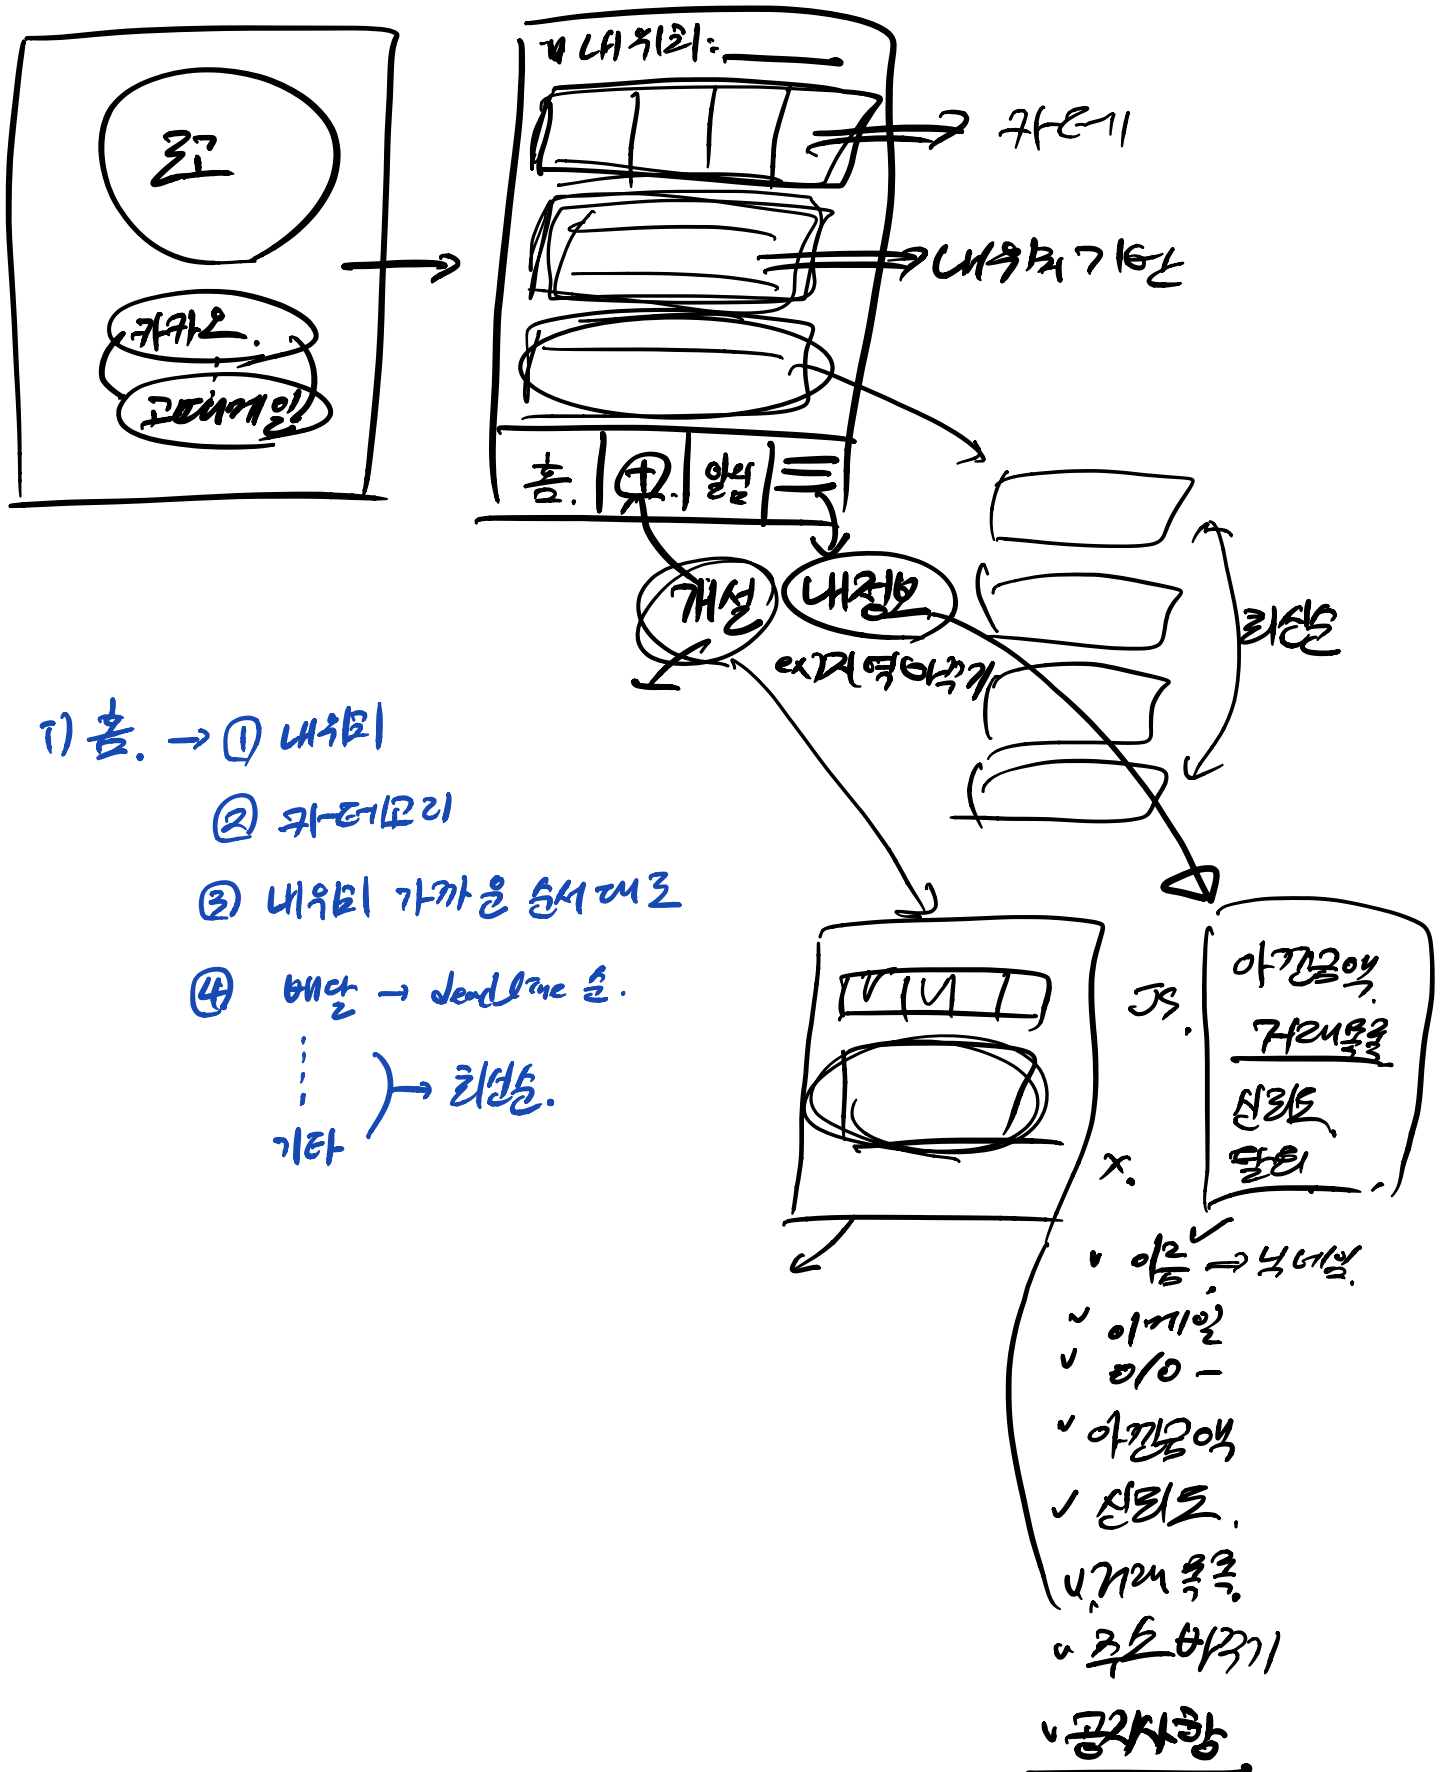 로고
카카오.
고대메일
내위치:
카테
내위치 기반
홈.
+
알림
개설
내정보
ex)지역바꾸기
최신순
1) 홈. → ① 내위치
② 카테고리
③ 내위치 가까운 순서대로
④ 배달 → deadline 순.
기타
→ 최신순.
JS.
아낀금액
거래목록
신뢰도
탈퇴
x.
이름 → 닉네임.
이메일
아낀금액
신뢰도.
거래목록
주소바꾸기
공지사항